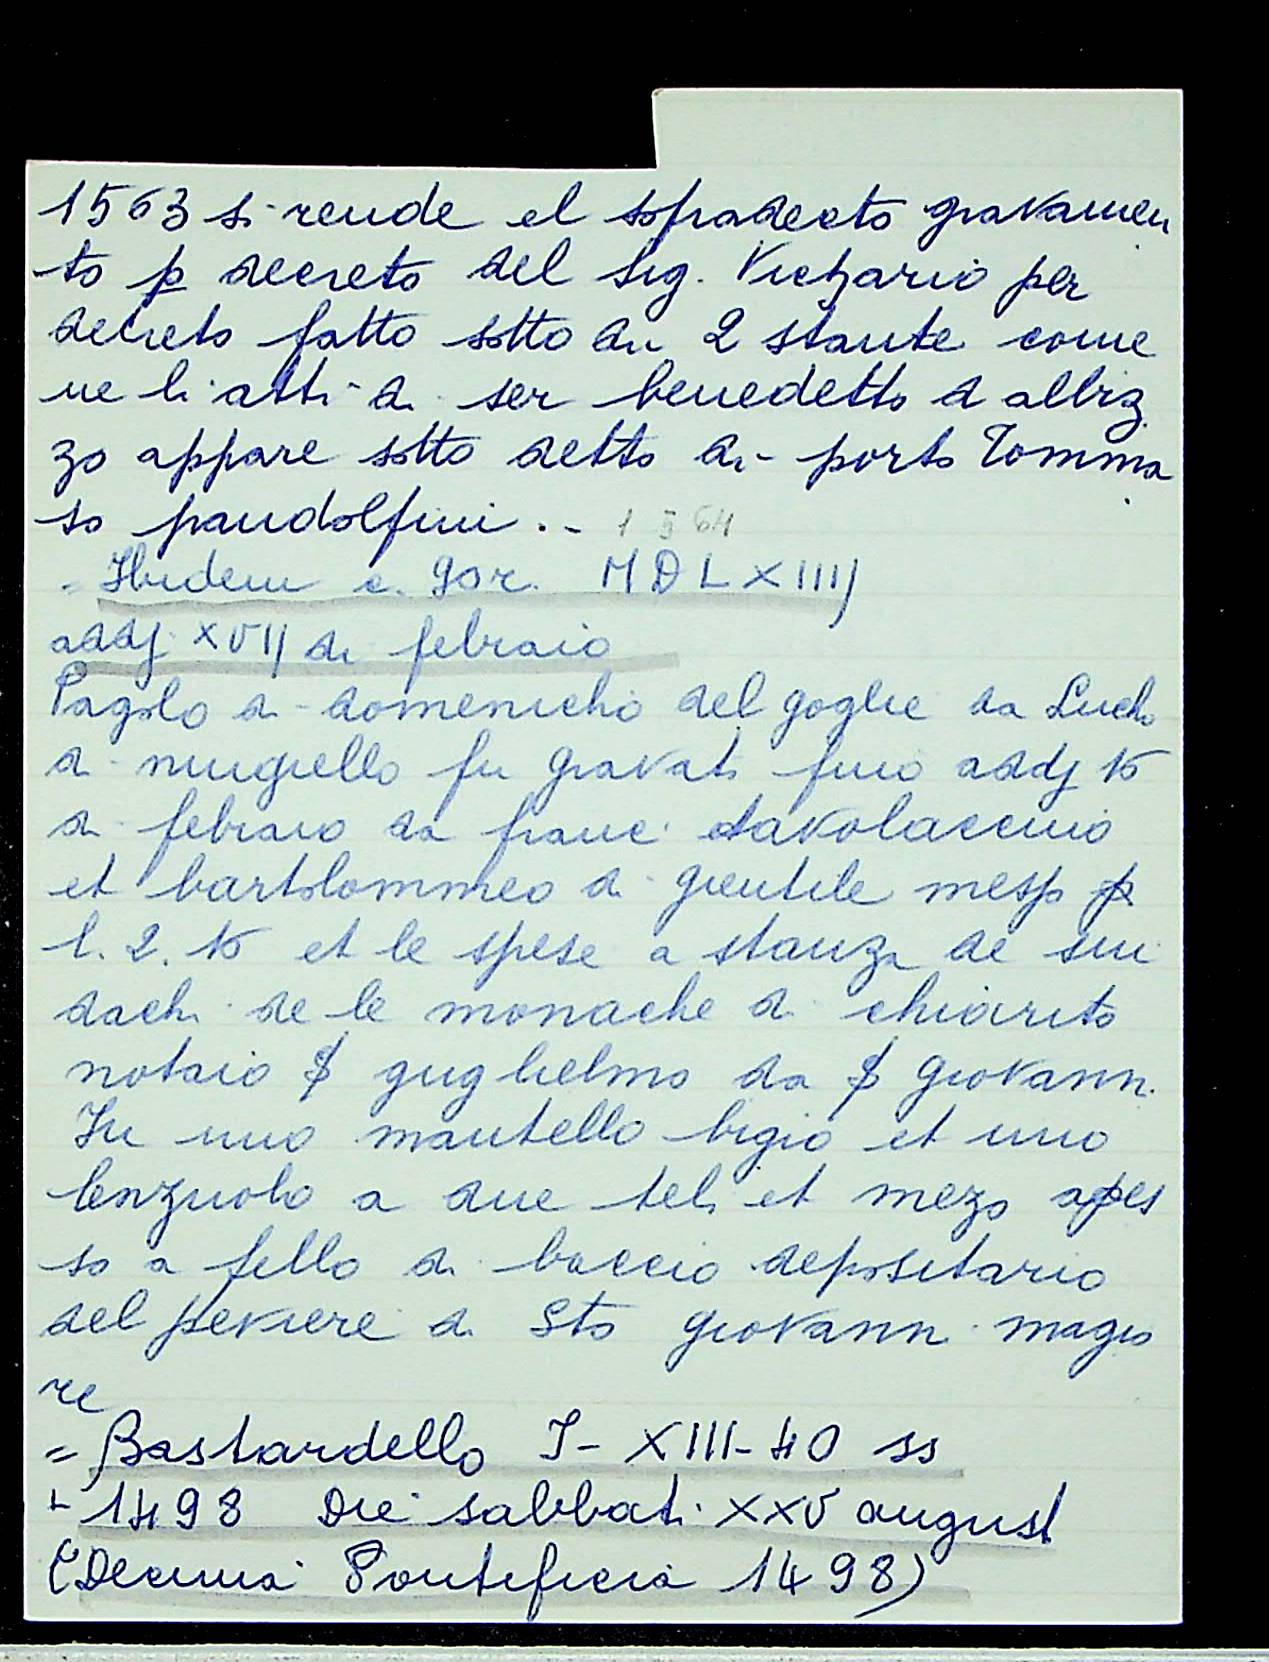 1563 si rende el sopradecto gravamen
to p decreto del sig. Vichario per
decreto fatto sotto di 2 stante come
ne li atti di ser benedetto d albiz
zo appare sotto detto di porto Tomma
so pandolfini . - 1564
= Ibidem c. 90r. MDLXIIIJ
addj XVIJ di febraio
Pagolo di domenicho del goglie da Lucho
di mugiello fu gravato fino addj 15
di febraio da franc. tavolaccino
et bartolommeo di gientile messo p
l. 2. 15 et le spese a stanza de sin
dachi de le monache di chiarito
notaio $ guglielmo da $ giovanni
In uno mantello bigio et uno
lenzuolo a due teli et mezo apes
so a fello di baccio depositario
del peviere di Sto giovanni magio
re
= Bastardello I - XIII - 40 ss
- 1498 Die sabbati XXV augusti
(Decima Pontificia 1498)